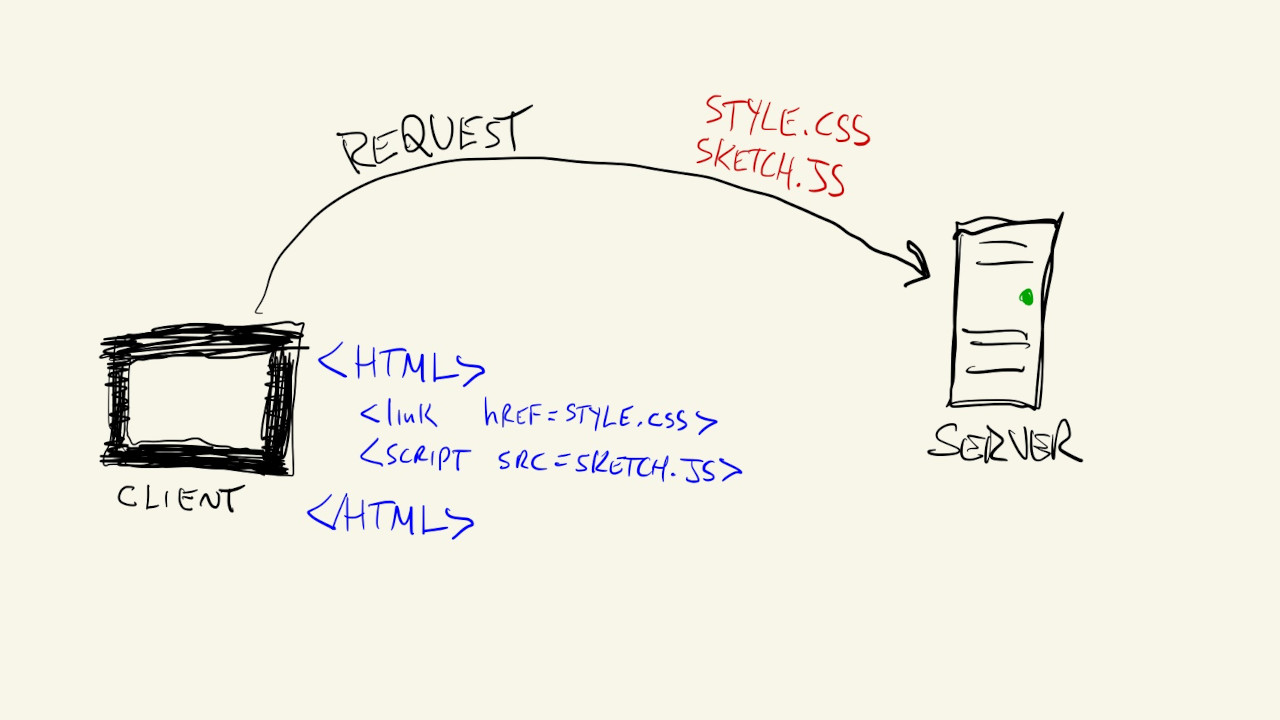 REQUEST
STYLE.CSS
SKETCH.JS
<HTML>
<link hREF=STYLE.CSS>
<SCRIPT SRC=SKETCH.JS>
</HTML>
CLIENT
SERVER